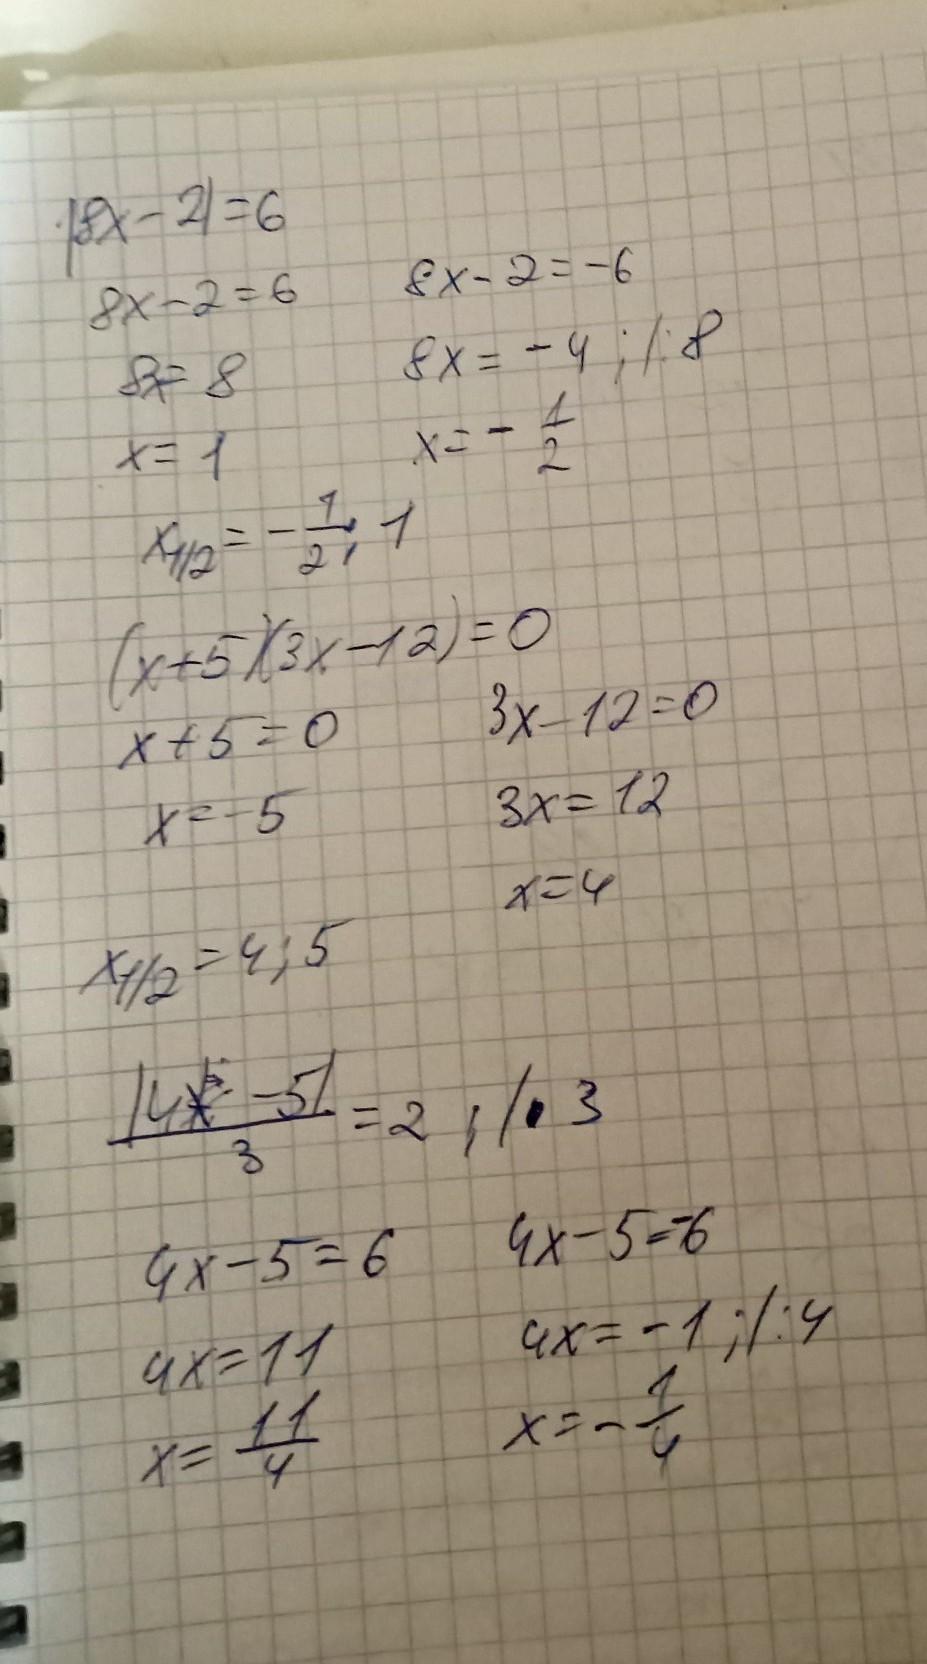 |8x-2|=6
8x-2=6 8x-2=-6
8x=8 8x=-4;/:8
x=1 x=-1/2
x1/2=-1/2;1
(x+5)(3x-12)=0
x+5=0 3x-12=0
x=-5 3x=12
x=4
x1/2=4;5
|4x-5|/3=2;/·3
4x-5=6 4x-5=-6
4x=11 4x=-1;/:4
x=11/4 x=-1/4